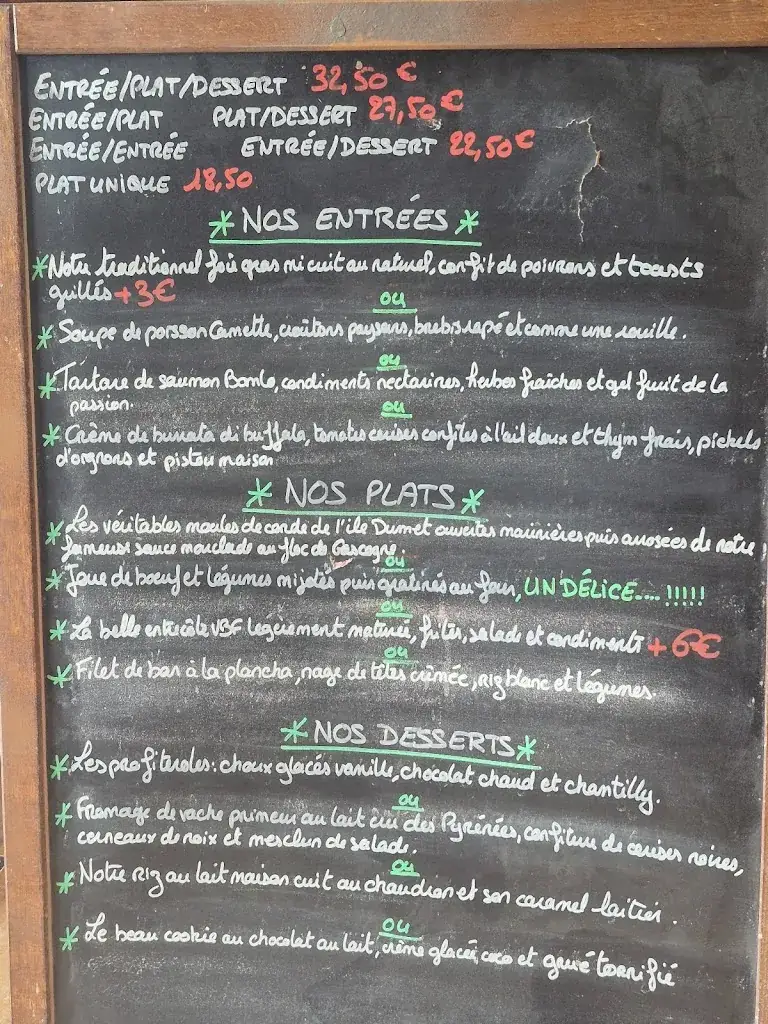 ENTRÉE/PLAT/DESSERT 32,50 €
ENTRÉE/PLAT PLAT/DESSERT 27,50 €
ENTRÉE/ENTRÉE ENTRÉE/DESSERT 22,50 €
PLAT UNIQUE 18,50
* NOS ENTRÉES *
* Notre traditionnel foie gras mi cuit au naturel, confit de poivrons et toasts
grillés +3€
ou
* Soupe de poisson Camette, croûtons paysans, brebis rapé et comme une rouille.
ou
* Tartare de saumon Bomlo, condiments nectarines, herbes fraîches et gel fruit de la
passion.
ou
* Crème de burrata di buffala, tomates cerises confites à l'ail doux et thym frais, pickels
d'oignons et pistou maison
* NOS PLATS *
* Les véritables moules de corde de l'île Dumet ouvertes marinières puis arrosées de notre
fameuse sauce mouclade au floc de Gascogne.
ou
* Joue de boeuf et légumes mijotés puis gratinés au four, UN DÉLICE.... !!!!!
ou
* La belle entrecôte VBF légèrement maturée, frites, salade et condiments +6€
ou
* Filet de bar à la plancha, nage de têtes crèmée, riz blanc et légumes.
* NOS DESSERTS *
* Les profiteroles: choux glacés vanille, chocolat chaud et chantilly.
ou
* Fromage de vache primeur au lait cru des Pyrénées, confiture de cerises noires,
cerneaux de noix et mesclun de salade.
ou
* Notre Riz au lait maison cuit au chaudron et son caramel laitier.
ou
* Le beau cookie au chocolat au lait, crème glacée coco et grué torréfié